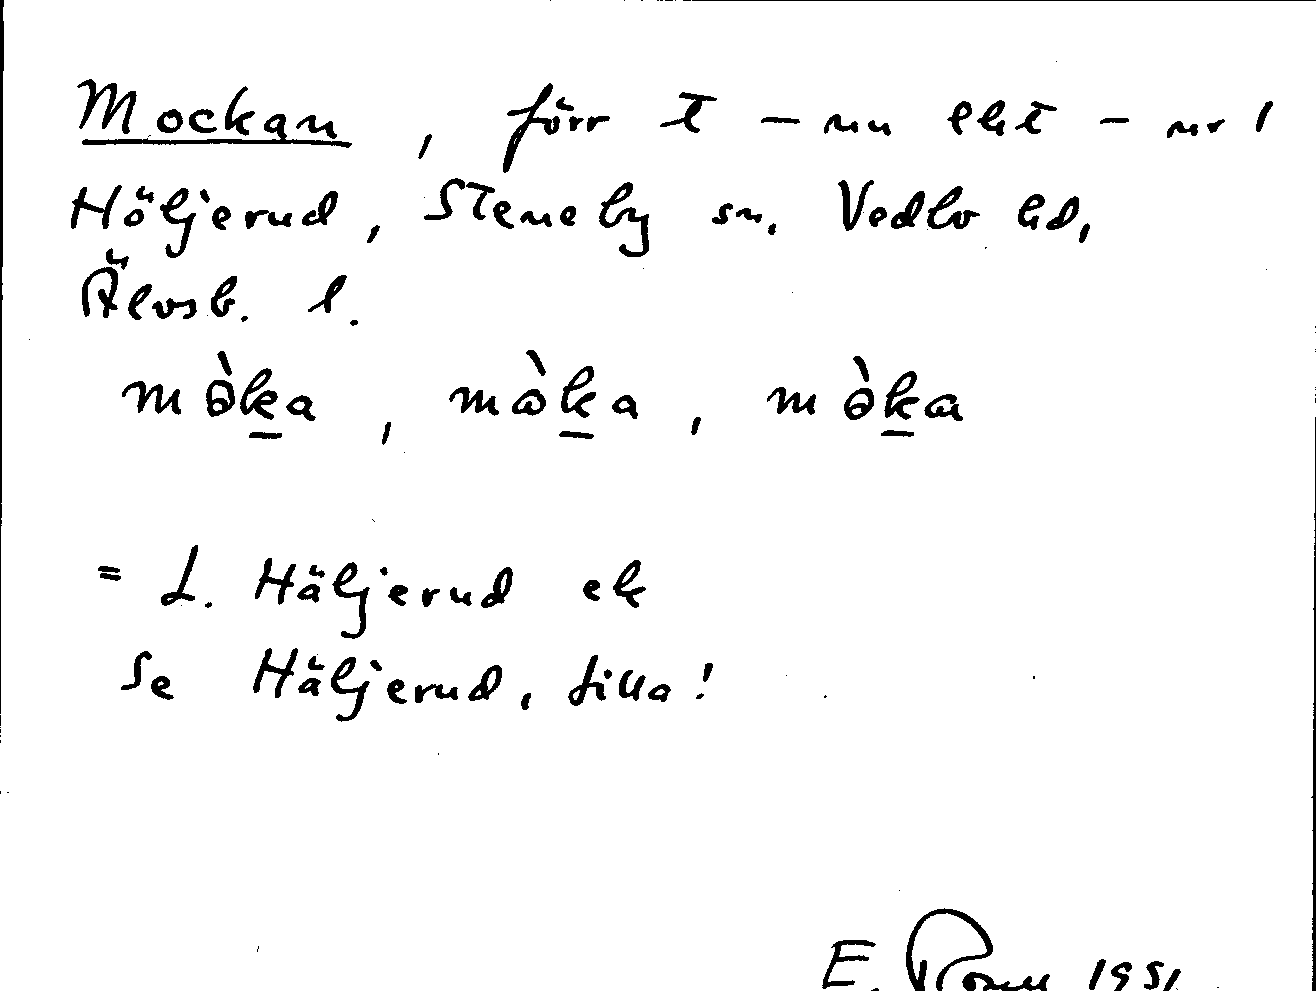 Mockan, förr t – nu lht – nr 1
Höljerud, Steneby sn. Vedbo hd,
Älvsb. l.
mòk̲a, mòk̲a, mòk̲a
= L. Häljerud ek
Se Häljerud, lilla!
E. 1951